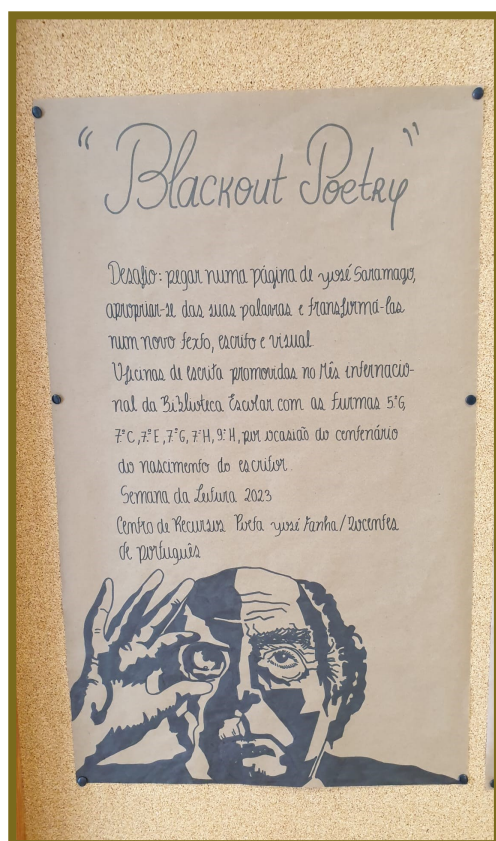 "Blackout Poetry"
Desafio: pegar numa página de José Saramago,
apropriar-se das suas palavras e transformá-las
num novo texto, escrito e visual
Oficinas de escrita promovidas no Mês internacio-
nal da Biblioteca Escolar com as turmas 5.ºG,
7.ºC, 7.ºE, 7.ºG, 7.ºH, 9.ºH, por ocasião do centenário
do nascimento do escritor.
Semana da Leitura 2023
Centro de Recursos Poeta José Fanha/Docentes
de português